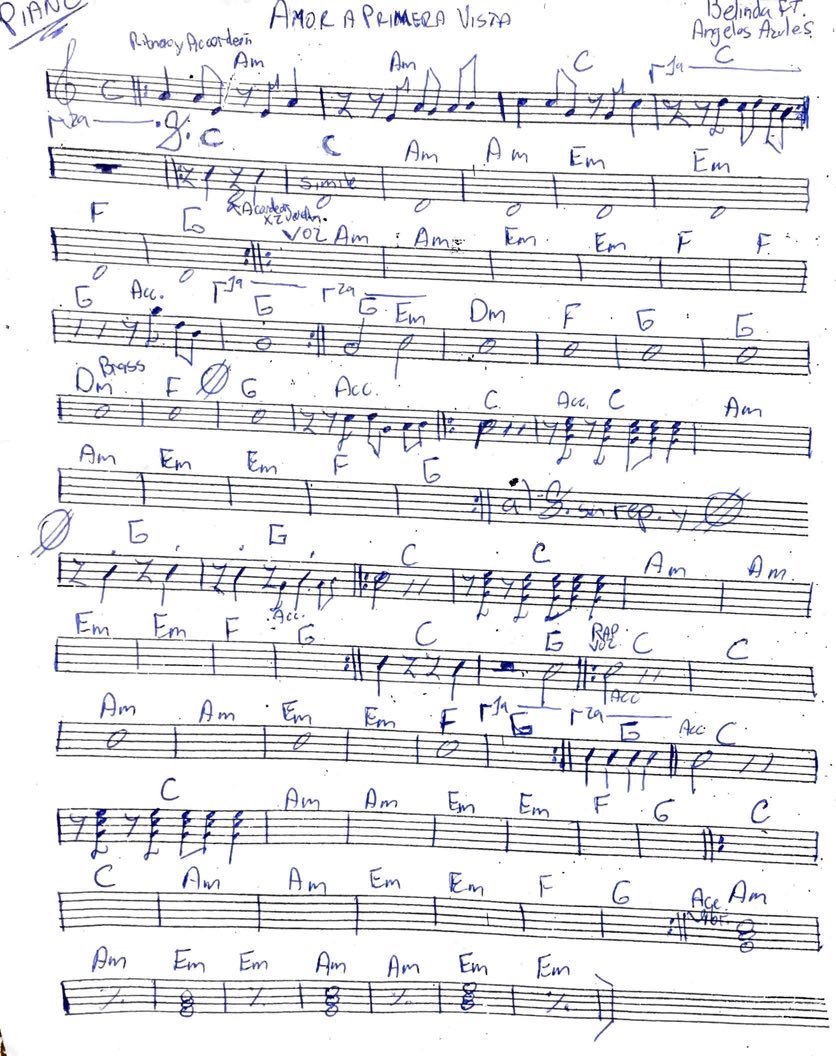 PIANO
AMOR A PRIMERA VISTA
Belinda FT.
Angeles Azules
Ritmo y Acordeón
Am Am C 1a C
2a C C Am Am Em Em
simile
Acordeón
F G Voz Am Am Em Em F F
G Acc. 1a G 2a G Em Dm F G G
Brass
Dm F G Acc. C Acc. C Am
Am Em Em F G
al sin rep. y
G G C C Am Am
Acc.
Em Em F G C G RAP VOZ C C
Acc
Am Am Em Em F 1a G 2a G Acc C
C Am Am Em Em F G C
C Am Am Em Em F G Acc Am
Am Em Em Am Am Em Em